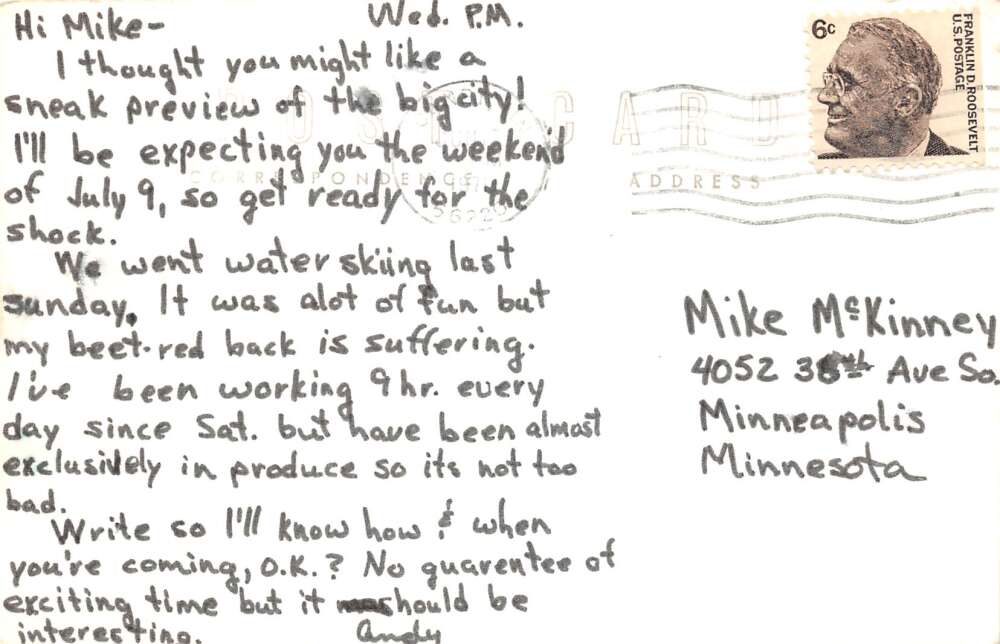 Hi Mike-
Wed. P.M.
I thought you might like a
sneak preview of the big city!
I'll be expecting you the weekend
of July 9, so get ready for the
shock.
We went water skiing last
sunday. It was alot of fun but
my beet-red back is suffering.
I've been working 9 hr. every
day since Sat. but have been almost
exclusively in produce so its not too
bad.
Write so I'll know how & when
you're coming, O.K.? No guarentee of
exciting time but it should be
interesting.
Andy
POST CARD
CORRESPONDENCE
ADDRESS
6c
FRANKLIN D. ROOSEVELT
U.S. POSTAGE
Mike McKinney
4052 Ave So.
Minneapolis
Minnesota